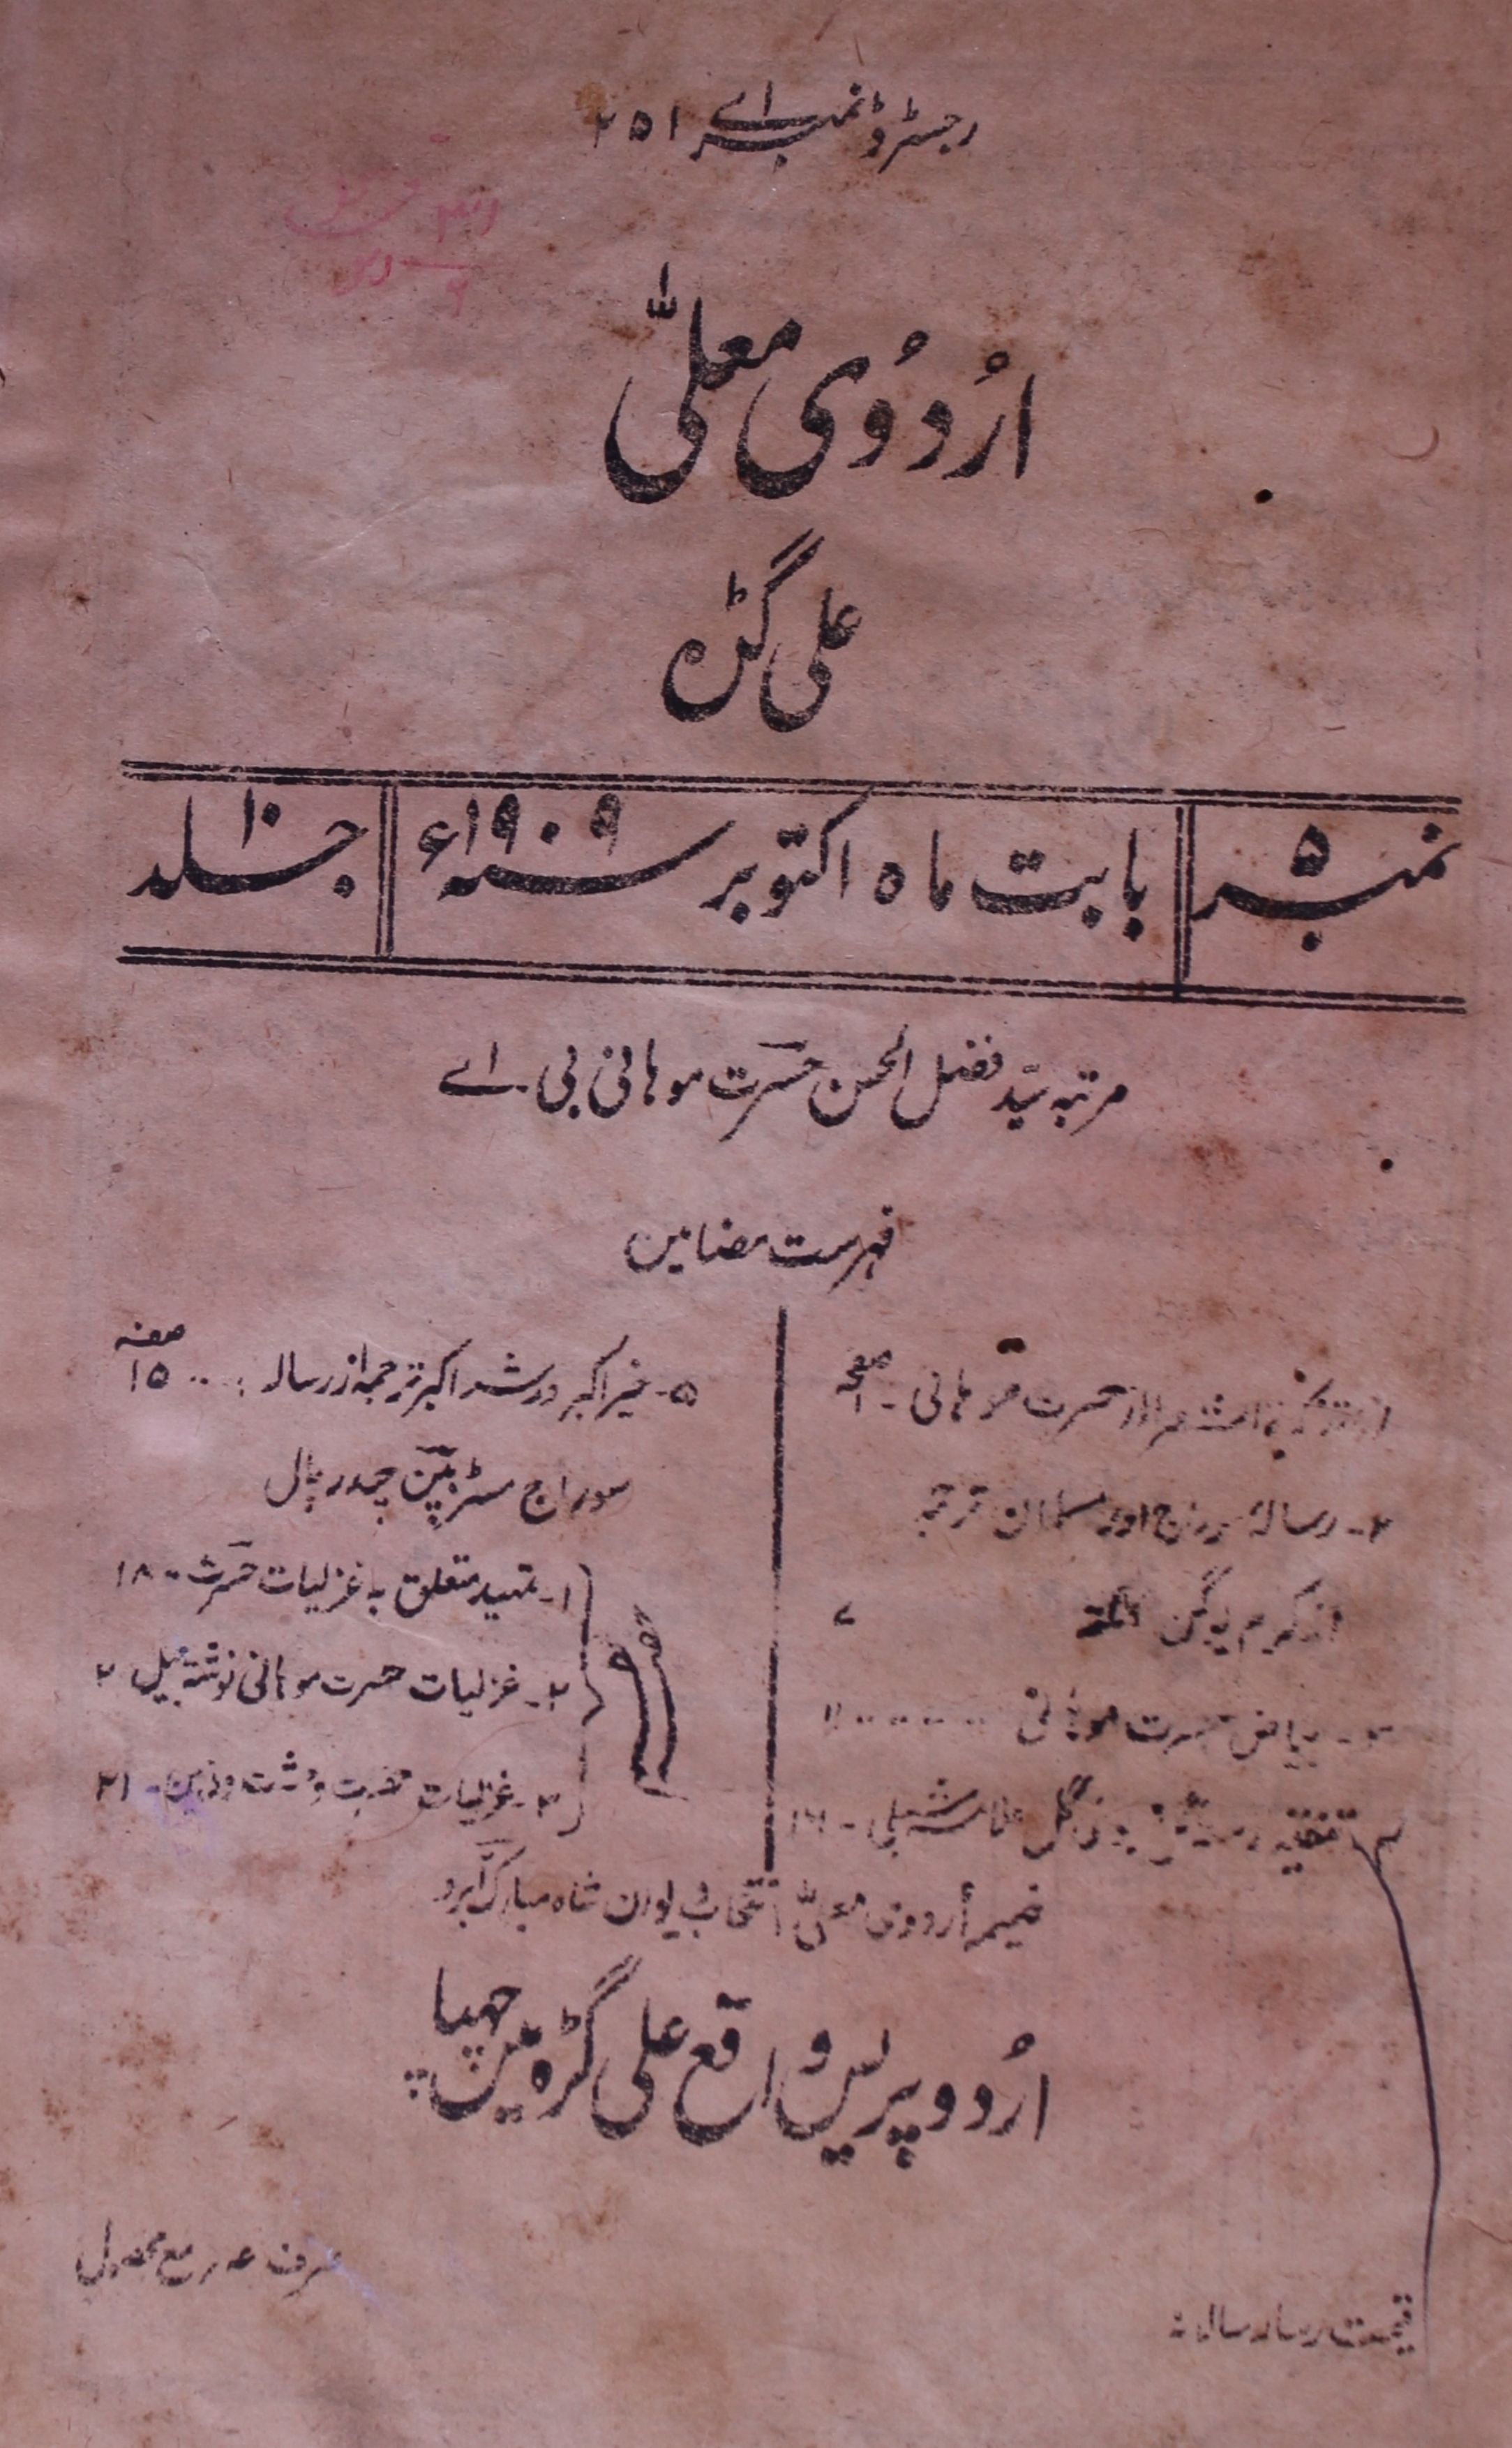 رجسٹرڈ نمبر اے ۲۵۱
اُردُوی معلّٰی
علی گڑہ
نمبر ۵
بابت ماہ اکتوبر سنہ ۱۹۰۹ء
جلد ۱۰
مرتبہ سیّد فضل الحسن حسرت موہانی بی۔ اے
فہرست مضامین
صفحہ
حسرت موہانی - ۱
۲- رسالہ اور مسلمان ترجمہ
از کرم یوگن ۷
بیاض حسرت موہانی ۱۱
۴- تنقید بوئے گل علامہ شبلی -
صفحہ
۵- خیر اکبر و شر اکبر ترجمہ از رسالہ ۱۵
سوراج مسٹر بپن چندر پال
حصہ نظم
۱- تمہید متعلق بہ غزلیات حسرت ۱۸
۲- غزلیات حسرت موہانی نوشتہ جیل ۲
۳- غزلیات وحشت - ۲۱
ضمیمہ أردوی معلّٰی انتخاب دیوان شاہ مبارک آبرو
اُردو پریس واقع علی گڑہ میں چھپا
قیمت رسالہ سالانہ
صرف مع محصول